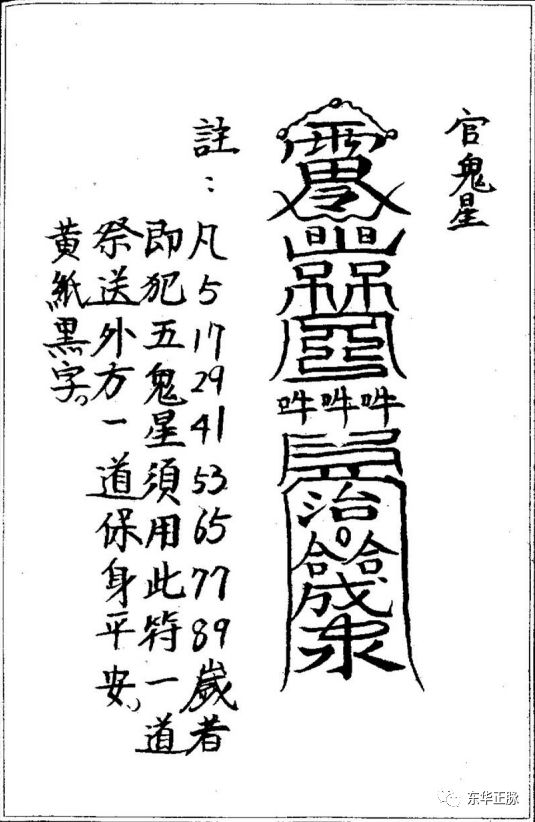 官鬼星
吽吽吽
治
合合
成
註：
凡5 17 29 41 53 65 77 89歲者
即犯五鬼星須用此符一道
祭送外方一道保身平安。
黃紙黑字。
东华正脉